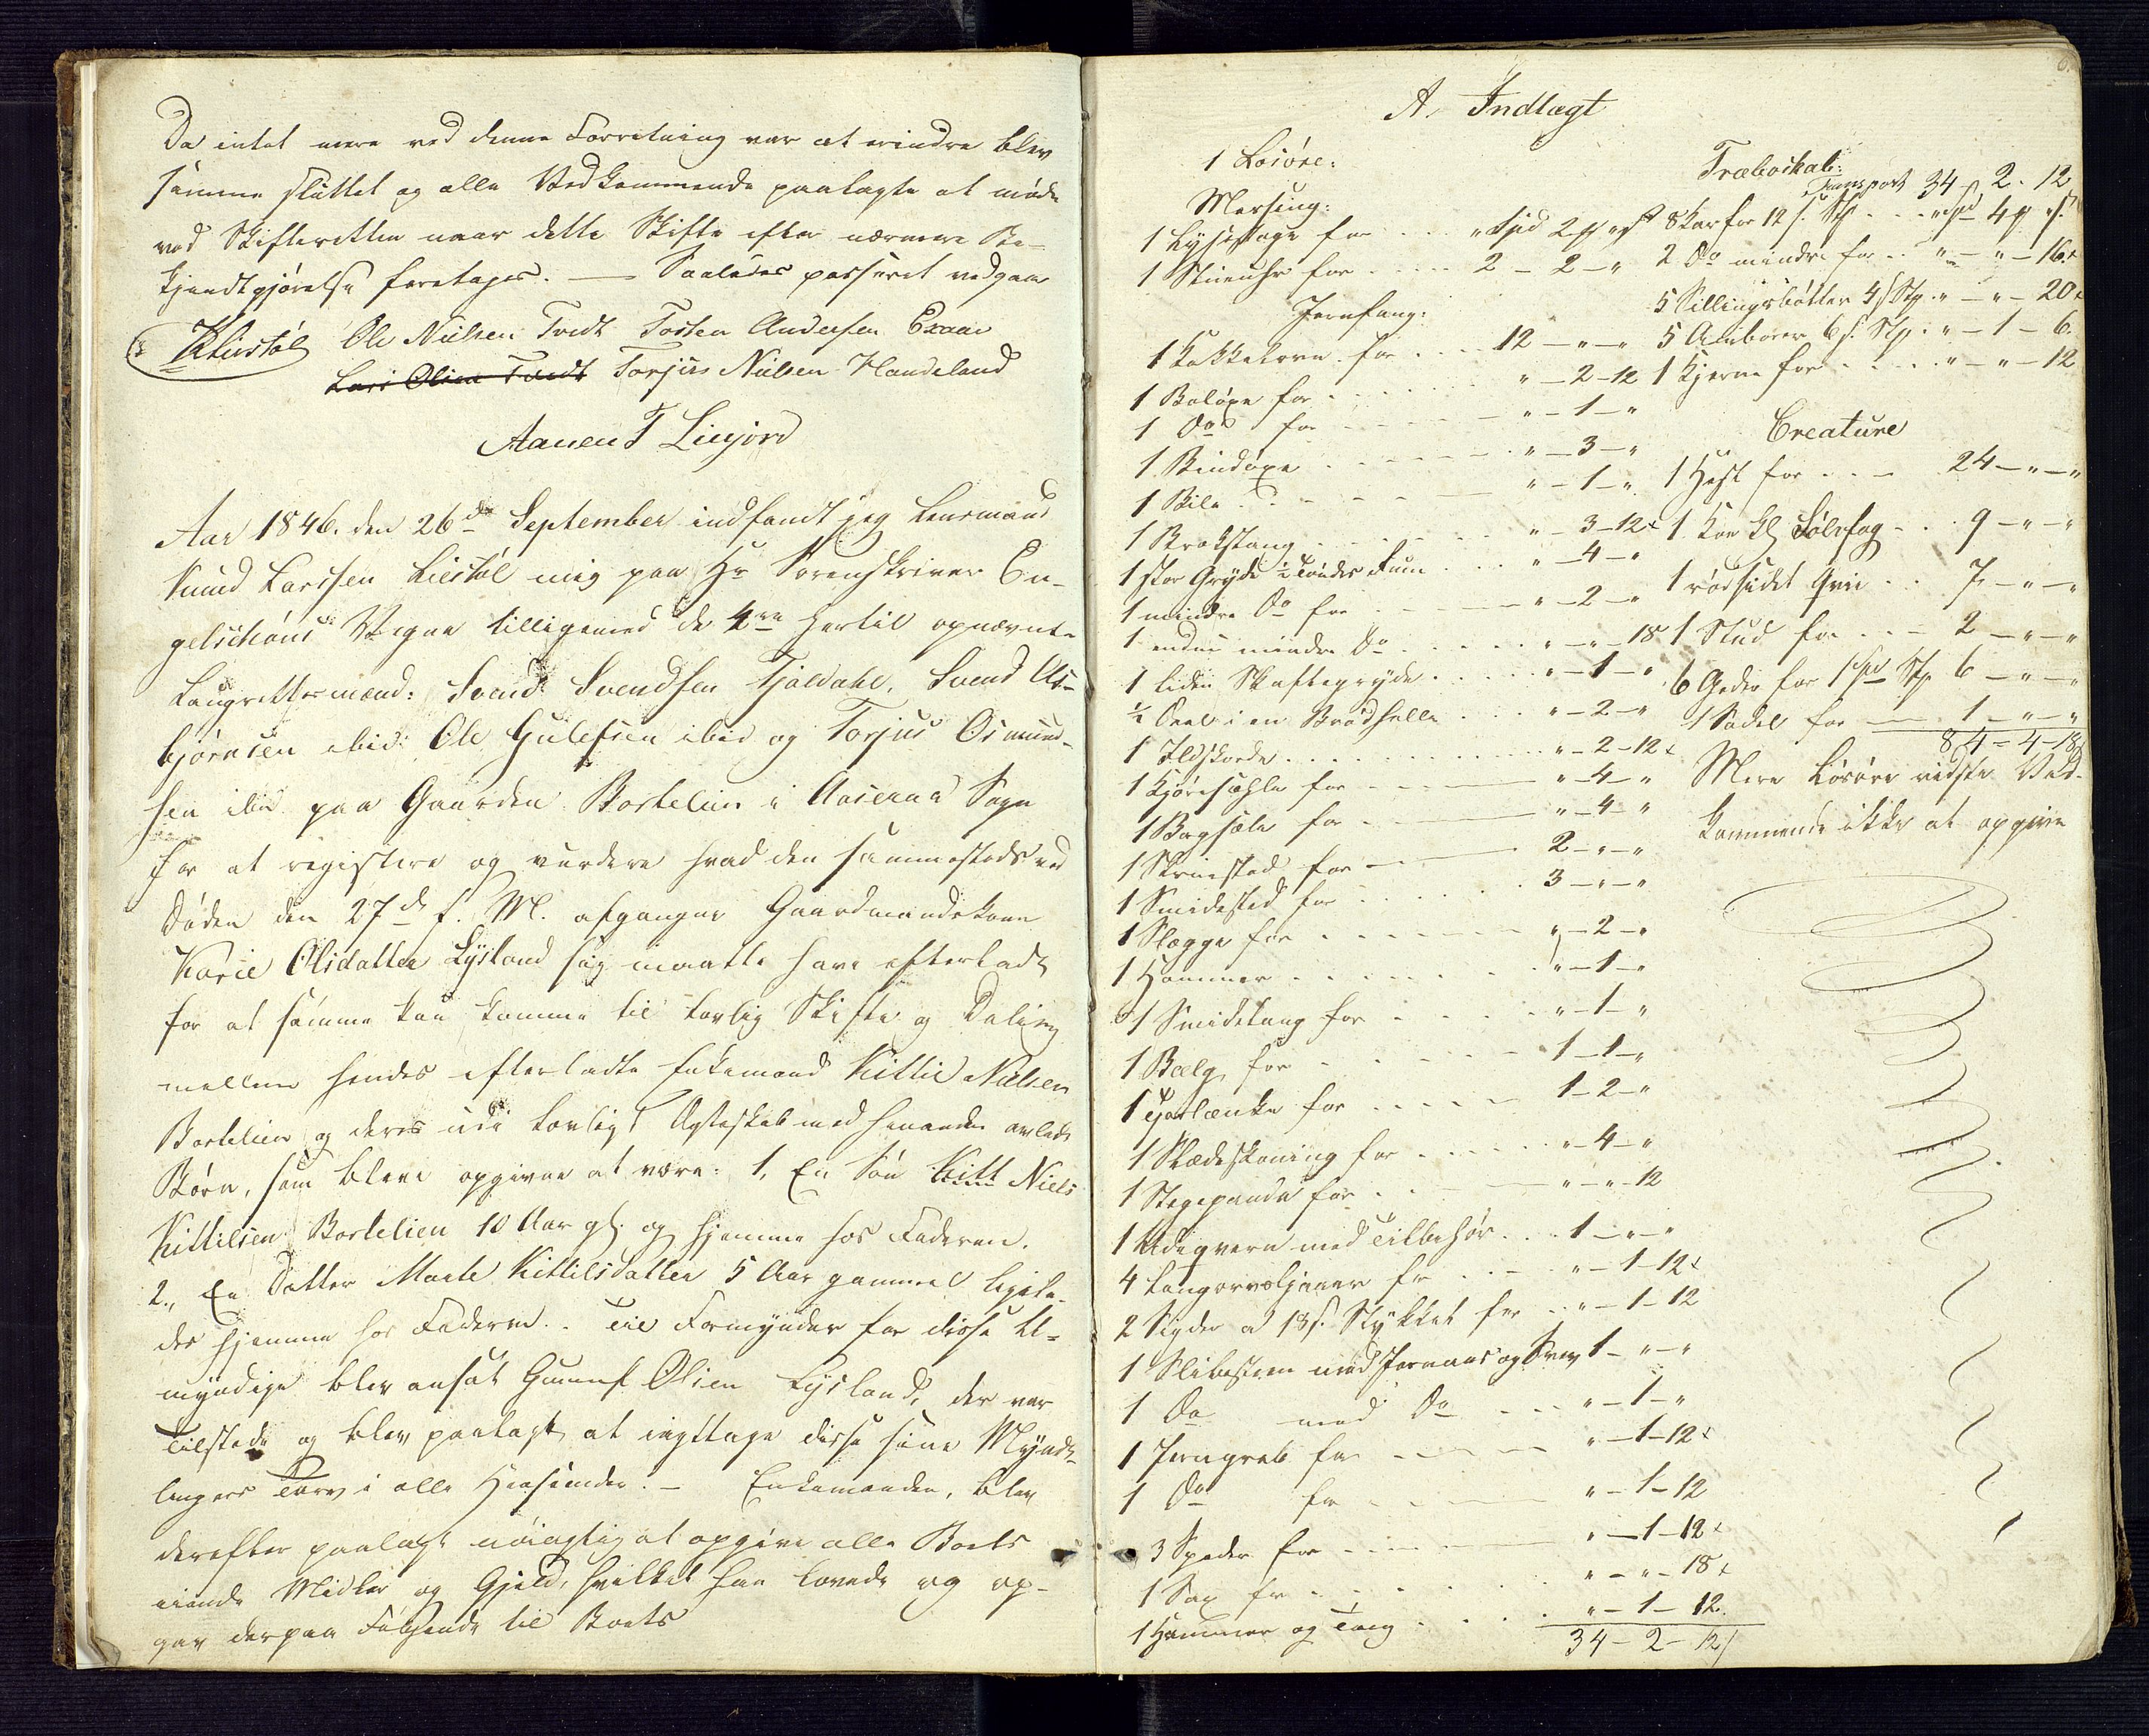 Da intet mere ved denne Forretning var at erindre blev
samme sluttet og alle Vedkommende paalagte at møde
ved Skifteretten naar dette Skifte efter nærmere Be-
kjendtgjørelse foretages. — Saaledes passeret vedgaaer
KLiestøl Ole Nielsen Tvedt Tosten Andersen Eraae
Lars Olsen Tvedt Torjus Nielsen Handeland
Aanen T Liegjord
Aar 1846. den 26de September indfandt jeg Lensmand
Knud Larssen Liestøl mig paa Hr Sorenskriver En-
gelschiøns Vegne tilligemed de 4re hertil opnævnte
Laugrettesmænd: Svend Svendsen Fjaldahl, Svend As-
bjørnsen ibid: Ole Gulefsen ibid og Torjus Osmund-
sen ibid paa Gaarden Bortelien i Aaseral Sogn
for at registere og vurdere hvad den sammesteds ved
Døden den 27de f. M. afgangne Gaardmandskone
Karie Olsdatter Lysland sig maatte have efterladt
for at samme kan komme til lovlig Skifte og Deling
mellem hendes efterladte Enkemand Kittil Nielsen
Bortelien og deres udi lovligt Ægteskab med hinanden avlede
Børn, som bleve opgivne at være: 1, En Søn Kitt Niels
Kittilsen Bortelien 10 Aar gl. og hjemme hos Faderen.
2, En Datter Marte Kittilsdatter 5 Aar gammel ligele-
des hjemme hos Faderen. Til Formynder for disse U-
myndige blev ansat Gunuf Olsen Lysland, der var
tilstede og blev paalagt at iagttage disse sine Mynd-
lingers Tarv i alle Henseender. — Enkemanden, blev
derefter paalagt nøiagtig at opgive alle Boets
eiende Midler og Gjeld, hvilket han lovede og op-
gav derpaa Følgende til Boets
A, Indtægt
1 Løsøre:
Messing:
1 Lysestage for " Spd 2 # " s
1 Stueuhr for 2 - 2 - "
Jernfang:
1 Kakkelovn for 12 - " - "
1 Boløxe for " - 2 - 12
1 Do for " - 1 - "
1 Bindøxe " - 3 - "
1 Bile " - 1 - "
1 Brækstang " - 3 - 12
1 stor Gryde i Tønder Rum " - 4 - "
1 mindre Do for " - 2 - "
1 endnu mindre Do " - " - 18
1 liden Skaftegryde " - 1 - "
½ Deel i en Brødhelle " - 2 - "
1 Ildskorde " - 2 - 12
1 Kjøresæhle for " - 4 - "
1 Bagsæle for " - 4 - "
1 Skruested for 2 - " - "
1 Smidested for 3 - " - "
1 Slægge for " - 2 - "
1 Hammer " - 1 - "
1 Smidetang for " - 1 - "
1 Bælg for 1 - 1 - "
1 Tjorlænke for 1 - 2 - "
1 Slædeskoning for " - 4 - "
1 Stegepande for " - " - 12
1 med Tilbehør 1 - " - "
4 Langorvsljaaer for " - 1 - 12
2 Sigder a 18 s. Stykket for " - 1 - 12
1 Slibesteen med Jernaas og Sveiv 1 - " - "
1 Do med Do " - 1 - "
1 Jerngreb for " - 1 - 12
1 Do for " - 1 - 12
3 Spader for " - 1 - 12
1 Sax for " - " - 18
1 Hammer og Tang " - 1 - 12
34 - 2 - 12
Træboskab:
Transport 34 - 2 - 12
8 Kar for 12 s. Stk " spd 4 # " s.
2 Do mindre for " - " - 16
5 Sillingsbøtter 4 s Stp. " - " - 20
5 Amborer 6 s. Stp. " - 1 - 6
1 Kjerne for " - " - 12
Creature
1 Hest for 24 - " - "
1 Koe kl Sølvfag 9 - " - "
1 rødsidet Qvie 7 - " - "
1 Stud for 2 - " - "
6 Geder for 1 spd Stp 6 - " - "
1 Sadel for 1 - " - "
84 - 4 - 18
Mere Løsøre vidste Ved-
kommende ikke at opgive